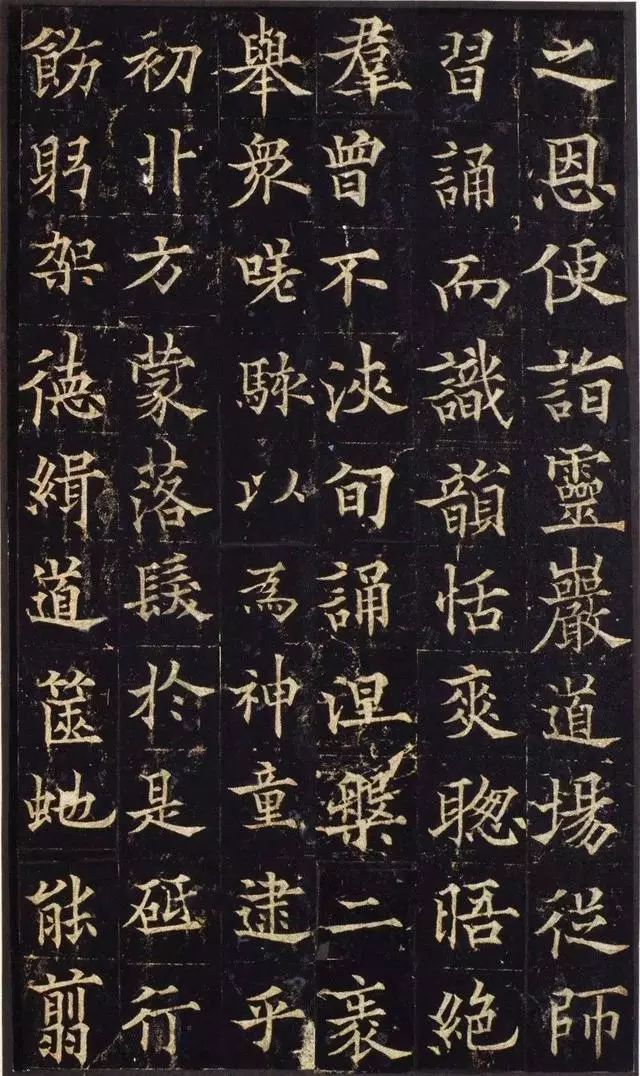 之恩便詣靈巖道場從師
習誦而識韻恬爽聰晤絕
羣曾不浹旬誦涅槃二袠
舉衆嗟駭以為神童逮乎
初北方蒙落髮於是砥行
飭躬架德緝道篋虵能翦